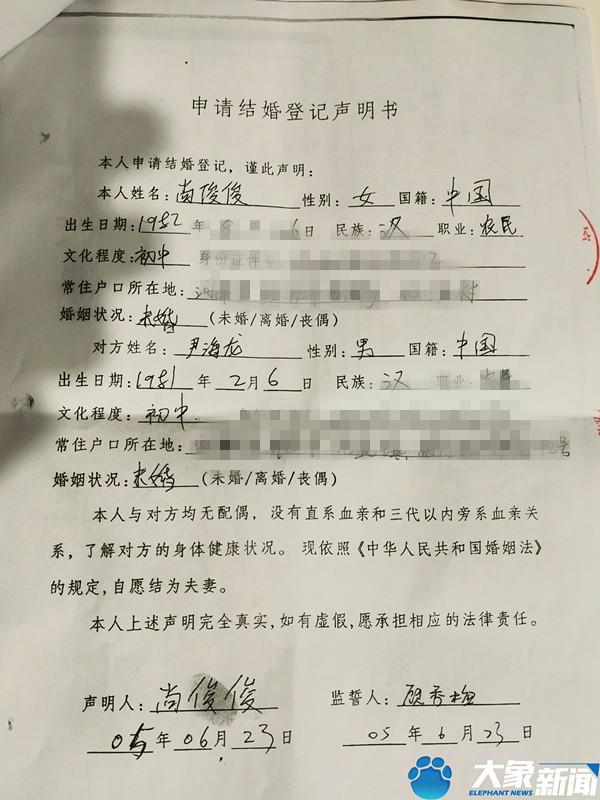 申请结婚登记声明书
本人申请结婚登记，谨此声明：
本人姓名：尚俊俊 性别：女 国籍：中国
出生日期：1982年8 6日 民族：汉 职业：农民
文化程度：初中 身份证件号
常住户口所在地：河 村
婚姻状况：未婚（未婚/离婚/丧偶）
对方姓名：尹海龙 性别：男 国籍：中国
出生日期：1981年2月6日 民族：汉 职业：
文化程度：初中
常住户口所在地： 号
婚姻状况：未婚（未婚/离婚/丧偶）
本人与对方均无配偶，没有直系血亲和三代以内旁系血亲关
系，了解对方的身体健康状况。现依照《中华人民共和国婚姻法》
的规定，自愿结为夫妻。
本人上述声明完全真实，如有虚假，愿承担相应的法律责任。
声明人：尚俊俊 监誓人：顾秀梅
05年06月23日 05年6月23日
大象新闻
ELEPHANT NEWS